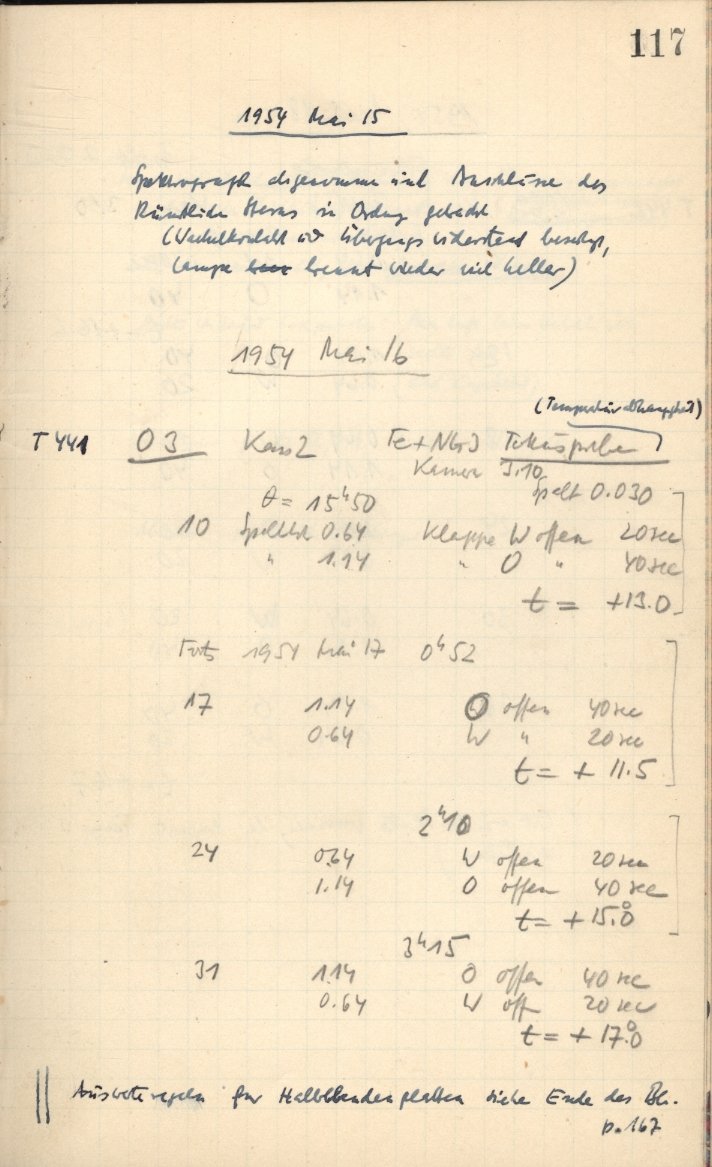 117
1954 Mai 15
Spektrograph abgenommen und Anschlüsse des
Künstlichen Sterns in Ordnung gebracht
(Wackelkontakt und Übergangswiderstand beseitigt,
Lampe brennt wieder viel heller)
1954 Mai 16
(Temperaturabhängigkeit)
T441 O3 Kass 2 Fe+NG3 Fokusprobe
Kamera 3.10
Spalt 0.030
θ = 15ʰ50
10 Spalthöh 0.64 Klappe W offen 20 sec
" 1.14 " O " 40 sec
t = +13.0
Forts 1954 Mai 17 0ʰ52
17 1.14 O offen 40 sec
0.64 W " 20 sec
t = + 11.5
2ʰ10
24 0.64 W offen 20 sec
1.14 O offen 40 sec
t = +15.°0
3ʰ15
31 1.14 O offen 40 sec
0.64 W off 20 sec
t = + 17.°0
für Halbblendenplatten siehe Ende des Bh.
p. 167